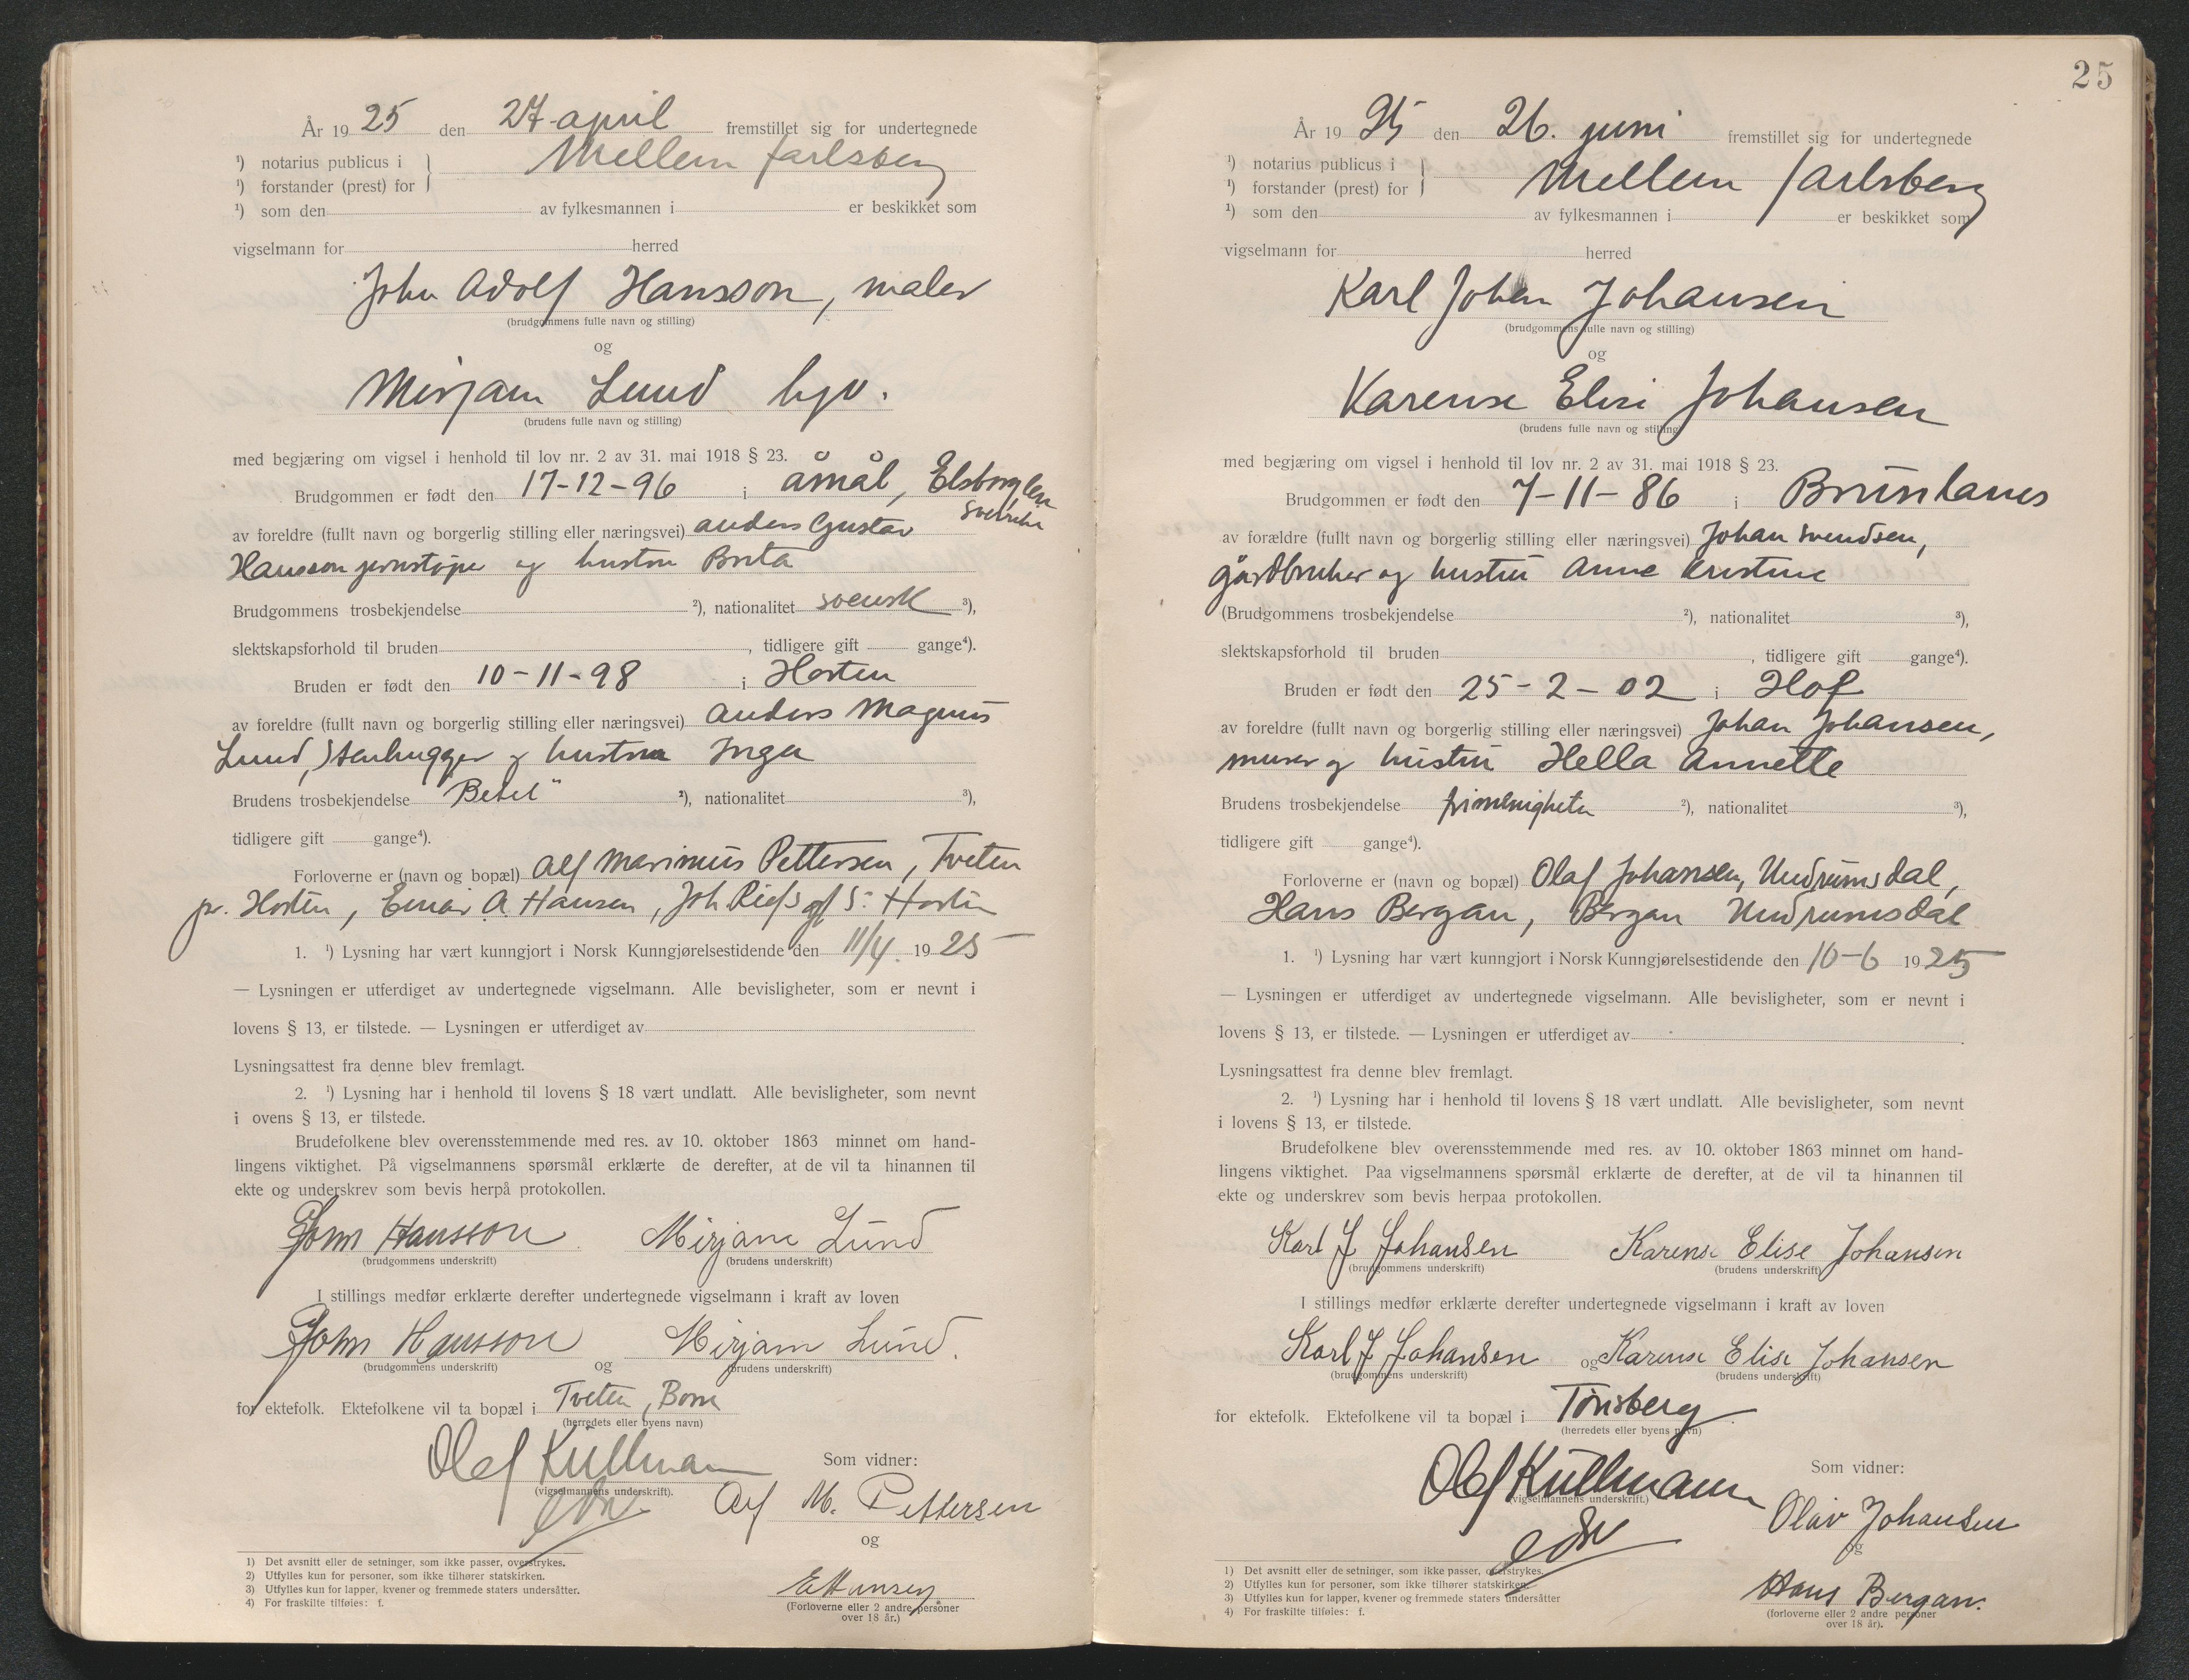 År 19 25 den 27 april fremstillet sig for undertegnede
¹) notarius publicus i
¹) forstander (prest) for
Mellem Jarlsberg
¹) som den av fylkesmannen i er beskikket som
vigselmann for herred
John Adolf Hansson, maler
(brudgommens fulle navn og stilling)
og
Mirjam Lund hjv.
(brudens fulle navn og stilling)
med begjæring om vigsel i henhold til lov nr. 2 av 31. mai 1918 § 23.
Brudgommen er født den 17-12-96 i åmål, Elsborglen
av foreldre (fullt navn og borgerlig stilling eller næringsvei) anders Gustav
Hansson jernstøper og hustru Brita
Brudgommens trosbekjendelse ²), nationalitet svensk ³),
slektskapsforhold til bruden , tidligere gift gange⁴).
Bruden er født den 10-11-98 i Horten
av foreldre (fullt navn og borgerlig stilling eller næringsvei) anders Magnus
Lund, Stenhugger og hustru Inga
Brudens trosbekjendelse "Betel" ²), nationalitet ³),
tidligere gift gange⁴).
Forloverne er (navn og bopæl) Alf Marinius Pettersen, Tveten
pr. Horten, Einar A. Hansen, Joh Riefs gt 5: Horten
1. ¹) Lysning har vært kunngjort i Norsk Kunngjørelsestidende den 11/4. 19 25
— Lysningen er utferdiget av undertegnede vigselmann. Alle bevisligheter, som er nevnt i
lovens § 13, er tilstede. — Lysningen er utferdiget av
Lysningsattest fra denne blev fremlagt.
2. ¹) Lysning har i henhold til lovens § 18 vært undlatt. Alle bevisligheter, som nevnt
i ovens § 13, er tilstede.
Brudefolkene blev overensstemmende med res. av 10. oktober 1863 minnet om hand-
lingens viktighet. På vigselmannens spørsmål erklærte de derefter, at de vil ta hinannen til
ekte og underskrev som bevis herpå protokollen.
John Hansson Mirjam Lund
(brudgommens underskrift) (brudens underskrift)
I stillings medfør erklærte derefter undertegnede vigselmann i kraft av loven
John Hansson og Mirjam Lund.
(brudgommens underskrift) (brudens underskrift)
for ektefolk. Ektefolkene vil ta bopæl i Tveten, Borre
(herredets eller byens navn)
Olef Kullmann
(vigselmannens underskrift).
Som vidner:
Alf M. Pettersen
og
E Hansen
(Forloverne eller 2 andre personer
over 18 år.)
1) Det avsnitt eller de setninger, som ikke passer, overstrykes.
2) Utfylles kun for personer, som ikke tilhører statskirken.
3) Utfylles kun for lapper, kvener og fremmede staters undersåtter.
4) For fraskilte tilføies: f.
25
År 19 25 den 26. juni fremstillet sig for undertegnede
¹) notarius publicus i
¹) forstander (prest) for
Mellem Jarlsberg
¹) som den av fylkesmannen i er beskikket som
vigselmann for herred
Karl Johan Johansen
(brudgommens fulle navn og stilling)
og
Karense Elise Johansen
(brudens fulle navn og stilling)
med begjæring om vigsel i henhold til lov nr. 2 av 31. mai 1918 § 23.
Brudgommen er født den 7-11-86 i Brunlanes
av forældre (fullt navn og borgerlig stilling eller næringsvei) Johan Svendsen,
gårdbruker og hustru Anne Kristine
(Brudgommens trosbekjendelse ²), nationalitet ³),
slektskapsforhold til bruden , tidligere gift gange⁴).
Bruden er født den 25-2-02 i Hof
av foreldre (fullt navn og borgerlig stilling eller næringsvei) Johan Johansen,
murer og hustru Hella Annette
Brudens trosbekjendelse frimenigheten ²), nationalitet ³),
tidligere gift gange⁴).
Forloverne er (navn og bopæl) Olaf Johansen, Undrumsdal,
Hans Bergan, Bergan Undrumsdal
1. ¹) Lysning har vært kunngjort i Norsk Kunngjørelsestidende den 10-6 19 25
— Lysningen er utferdiget av undertegnede vigselmann. Alle bevisligheter, som er nevnt i
lovens § 13, er tilstede. — Lysningen er utferdiget av
Lysningsattest fra denne blev fremlagt.
2. ¹) Lysning har i henhold til lovens § 18 vært undlatt. Alle bevisligheter, som nevnt
i lovens § 13, er tilstede.
Brudefolkene blev overensstemmende med res. av 10. oktober 1863 minnet om hand-
lingens viktighet. Paa vigselmannens spørsmål erklærte de derefter, at de vil ta hinannen til
ekte og underskrev som bevis herpaa protokollen.
Karl J Johansen Karense Elise Johansen
(brudgommens underskrift) (brudens underskrift)
I stillings medfør erklærte derefter undertegnede vigselmann i kraft av loven
Karl J Johansen og Karense Elise Johansen
(brudgommens underskrift) (brudens underskrift)
for ektefolk. Ektefolkene vil ta bopæl i Tønsberg
(herredets eller byens navn)
Olef Kullmann
(vigselmannens underskrift.)
Som vidner:
Olav Johansen
og
Hans Bergan.
(forloverne eller 2 andre personer
over 18 år).
1) Det avsnitt eller de setninger, som ikke passer, overstrykes.
2) Utfylles kun for personer, som ikke tilhører statskirken.
3) Utfylles kun for lapper, kvener og fremmede staters undersåtter
4) For fraskilte tilføies: f.